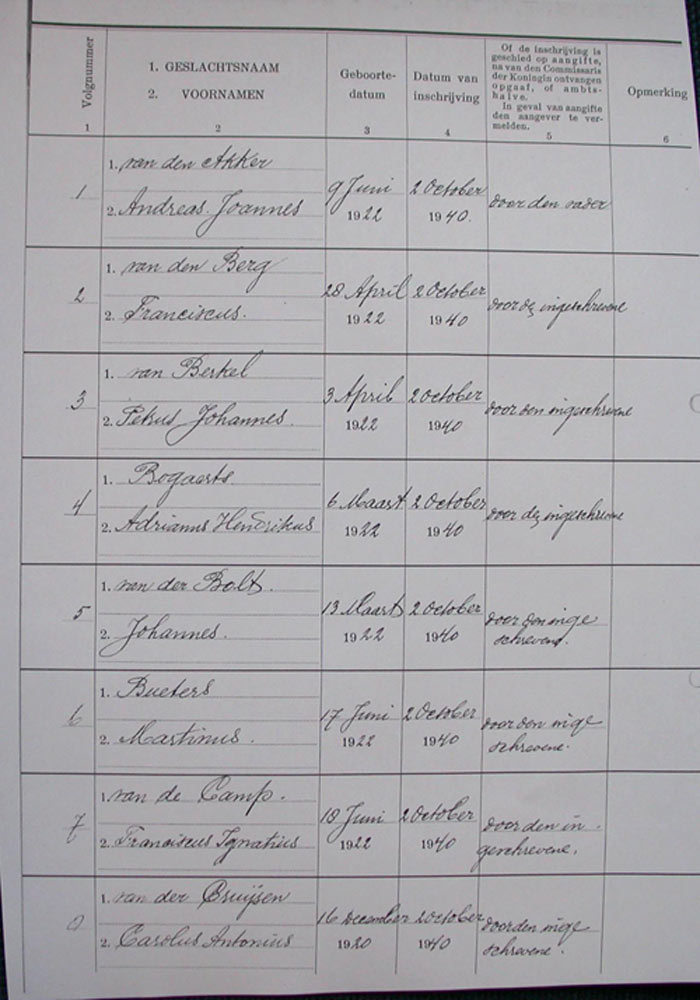 Volgnummer
1. GESLACHTSNAAM
2. VOORNAMEN
Geboorte-
datum
Datum van
inschrijving
Of de inschrijving is
geschied op aangifte,
na van den Commissaris
der Koningin ontvangen
opgaaf, of ambts-
halve.
In geval van aangifte
den aangever te ver-
melden.
Opmerking
1 2 3 4 5 6
1 1. van den Akker
2. Andreas Joannes
9 Juni 1922
2 October 1940.
door den vader
2 1. van den Berg
2. Franciscus.
28 April 1922
2 October 1940
door de ingeschrevene
3 1. van Berkel
2. Petrus Johannes.
3 April 1922
2 October 1940
door den ingeschrevene
4 1. Bogaerts
2. Adrianus Hendrikus
6 Maart 1922
2 October 1940
door de ingeschrevene
5 1. van der Bolt.
2. Johannes.
13 Maart 1922
2 October 1940
door den inge
schrevene.
6 1. Bueters
2. Martinus.
17 Juni 1922
2 October 1940
door den inge
schrevene.
7 1. van de Camp.
2. Franciscus Ignatius
18 Juni 1922
2 October 1940
door den in-
geschrevene.
8 1. van der Cruijsen
2. Carolus Antonius
16 December 1920
2 October 1940
door den inge
schrevene.